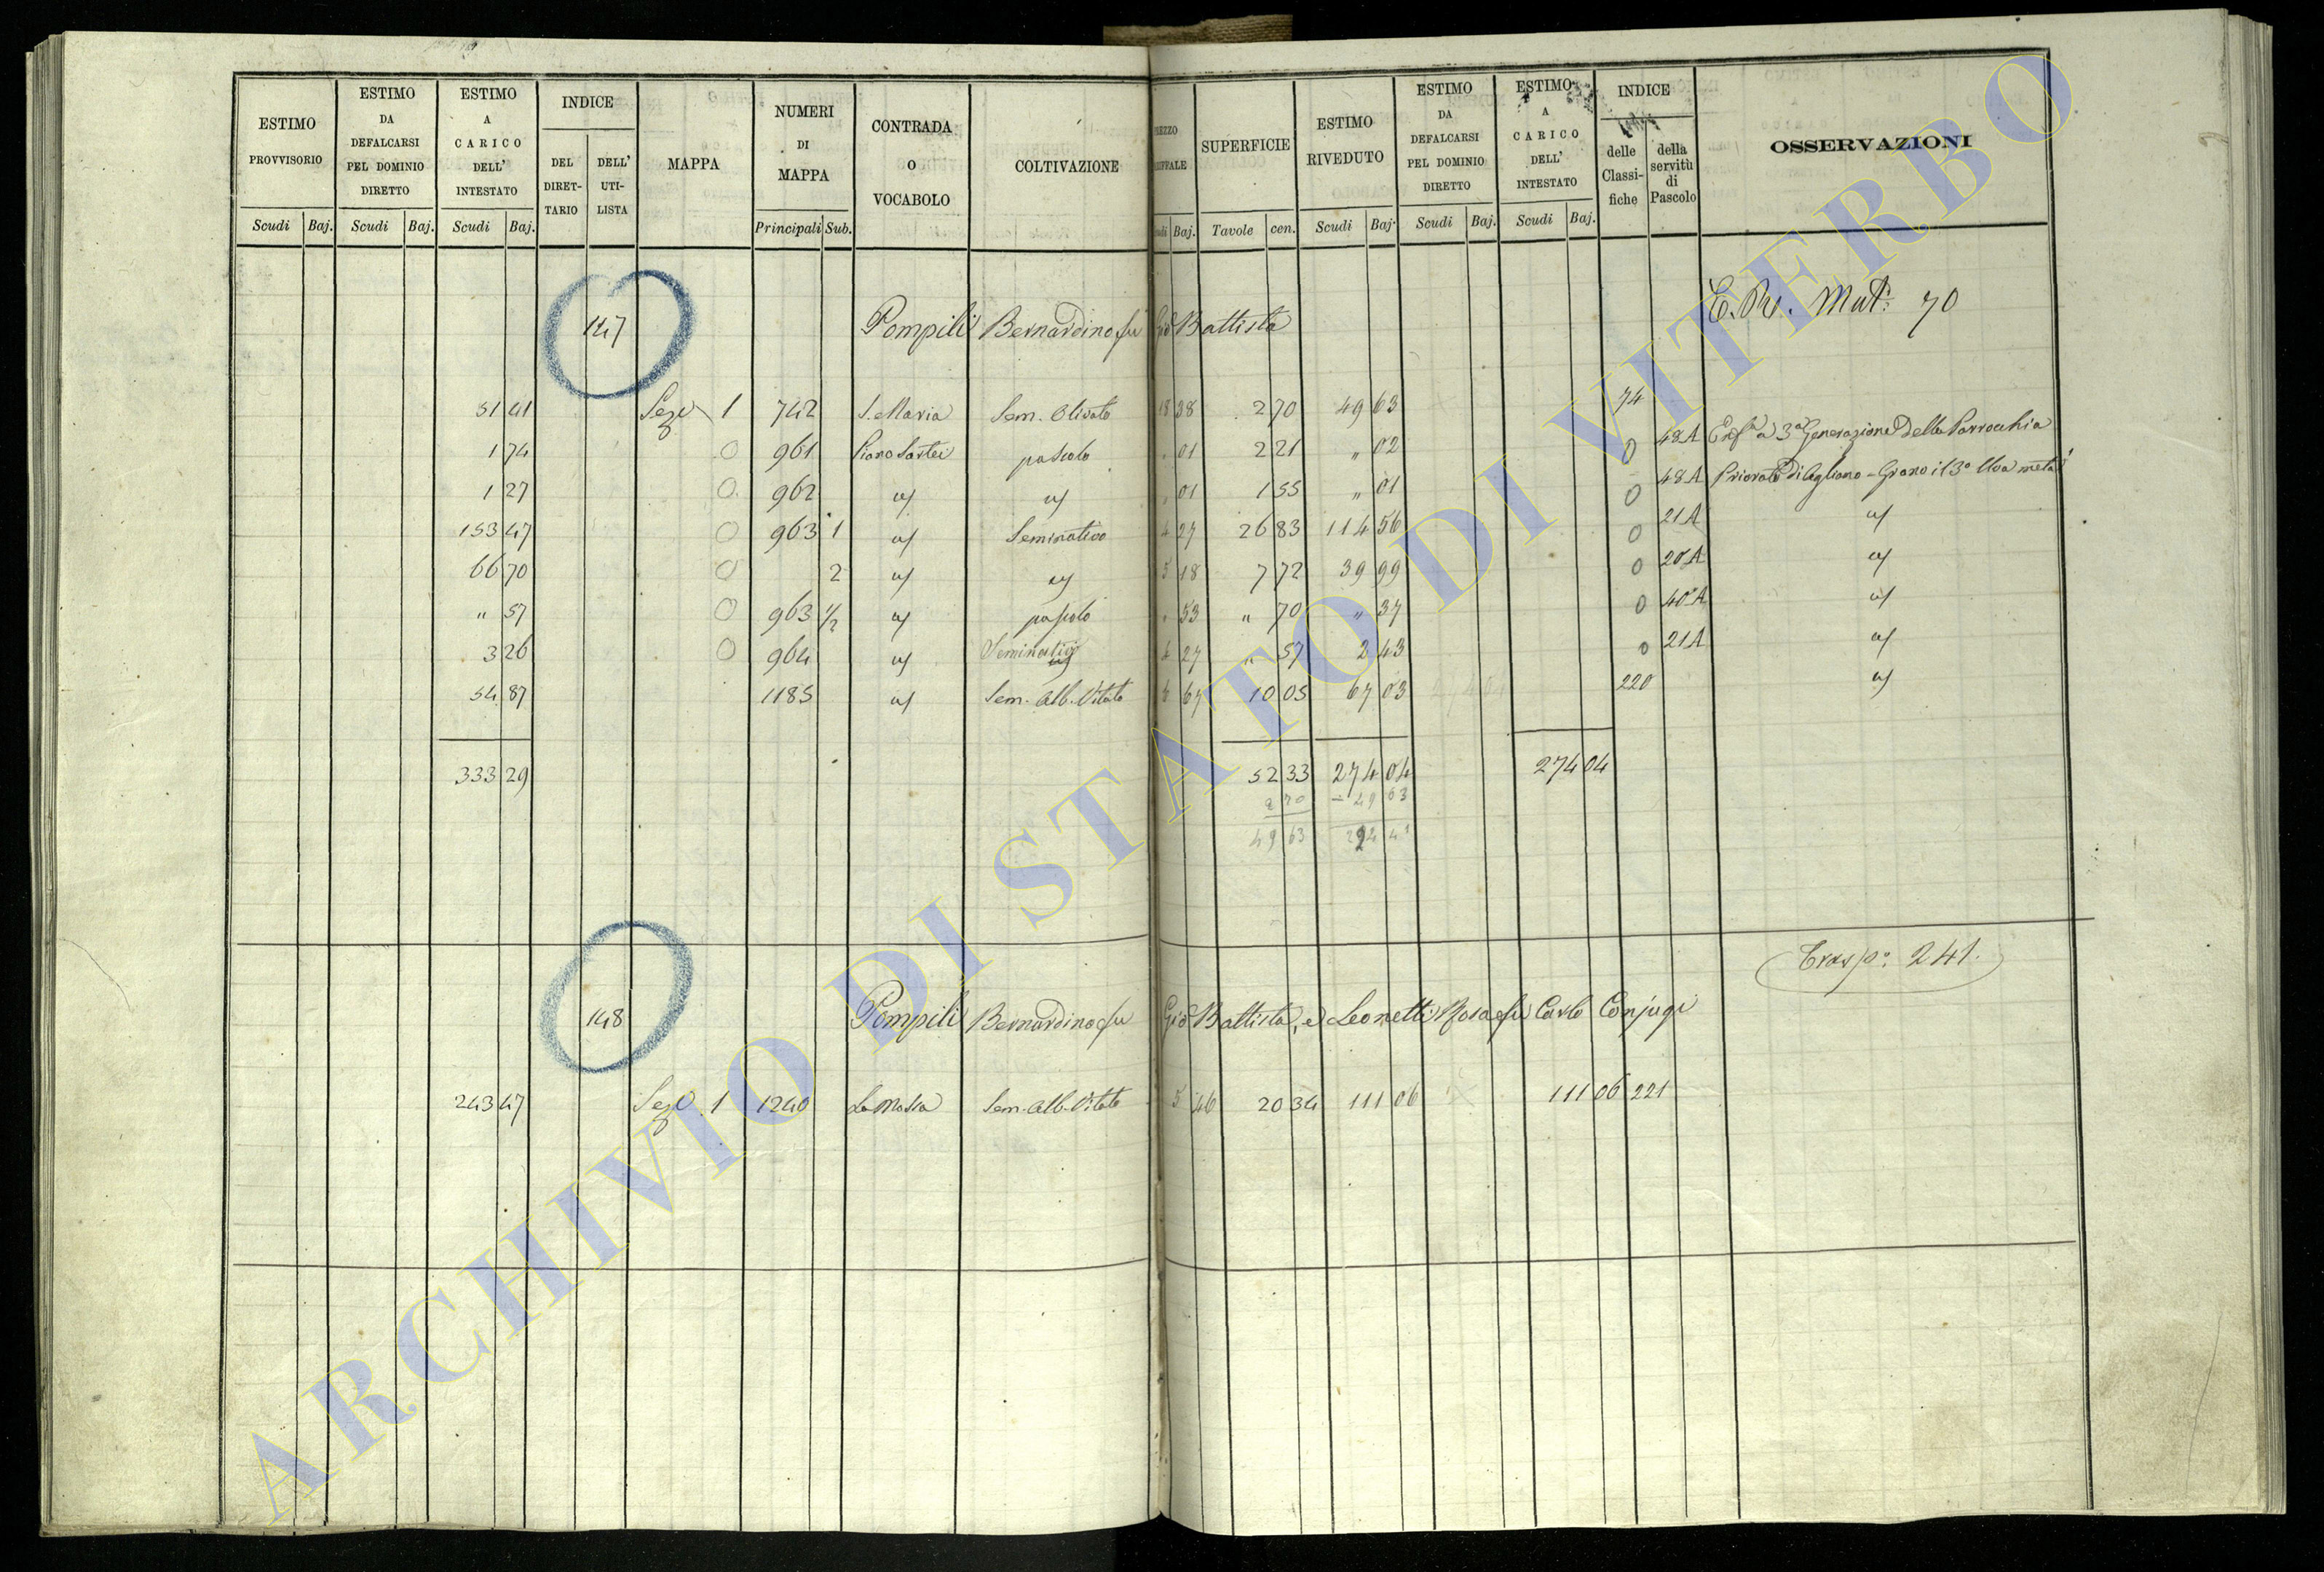 ESTIMO PROVVISORIO | ESTIMO DA DEFALCARSI PEL DOMINIO DIRETTO | ESTIMO A CARICO DELL' INTESTATO | INDICE DEL DIRETTARIO | DELL' UTILISTA | MAPPA | NUMERI DI MAPPA | CONTRADA O VOCABOLO | COLTIVAZIONE | SUPERFICIE | ESTIMO RIVEDUTO | ESTIMO DA DEFALCARSI PEL DOMINIO DIRETTO | ESTIMO A CARICO DELL' INTESTATO | INDICE delle Classifiche | della servitù di Pascolo | OSSERVAZIONI
Scudi Baj. | Scudi Baj. | Scudi Baj. | Principali Sub. | Baj. | Tavole cen. | Scudi Baj. | Scudi Baj. | Scudi Baj.
E. Rv. Mut. 70
147 Pompili Bernardino fu Gio Battista
51 41 Sez. 1 742 S. Maria Sem. Olivato 18 38 2 70 49 63 74
1 74 0 961 pascolo . 01 2 21 " 02 0 48A a 3a Generazione della Parrocchia
1 27 0 962 " 01 1 55 " 01 0 48A Priorato di Agliano = Grano il 3o Uva metà
153 47 0 963 1 Seminativo 4 27 26 83 114 56 0 21A
66 70 0 2 5 18 7 72 39 99 0 20A
" 57 0 963 1/2 pascolo . 53 " 70 " 37 0 40A
3 26 0 964 Seminativo 4 27 " 57 2 43 0 21A
54 87 1185 Sem. Alb. Vitato 6 67 10 05 67 03 220
333 29 52 33 274 04 274 04
2 70 - 49 63
49 63 41
Trasp: 241.
148 Pompili Bernardino fu Gio Battista, e Leonetti Rosa fu Carlo Conjugi
243 47 Sez. 1 1240 La Massa Sem. Alb. Vitato 5 46 20 34 111 06 111 06 221
ARCHIVIO DI STATO DI VITERBO